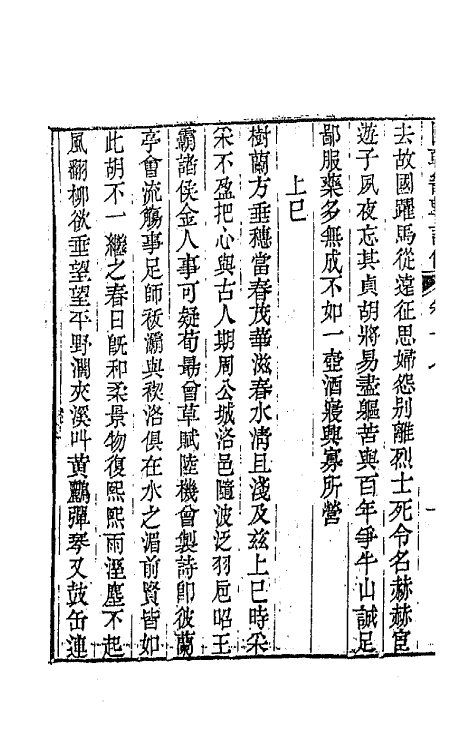 去故國躍馬從遠征思婦怨別離烈士死令名赫赫宦
遊子夙夜忘其貞胡將易盡軀苦與百年爭牛山誠足
鄙服藥多無成不如一壺酒寢興寡所營
上巳
樹蘭方垂穗當春茂華滋春水淸且淺及茲上巳時采
采不盈把心與古人期周公城洛邑隨波泛羽卮昭王
霸諸侯金人事可疑荀勗曾草賦陸機曾製詩卽彼蘭
亭會流觴事足師祓灞與禊洛俱在水之湄前賢皆如
此胡不一繼之春日旣和柔景物復熙熙雨溼塵不起
風翻柳欲垂望望平野濶夾溪叫黃鸝彈琴又鼓缶連